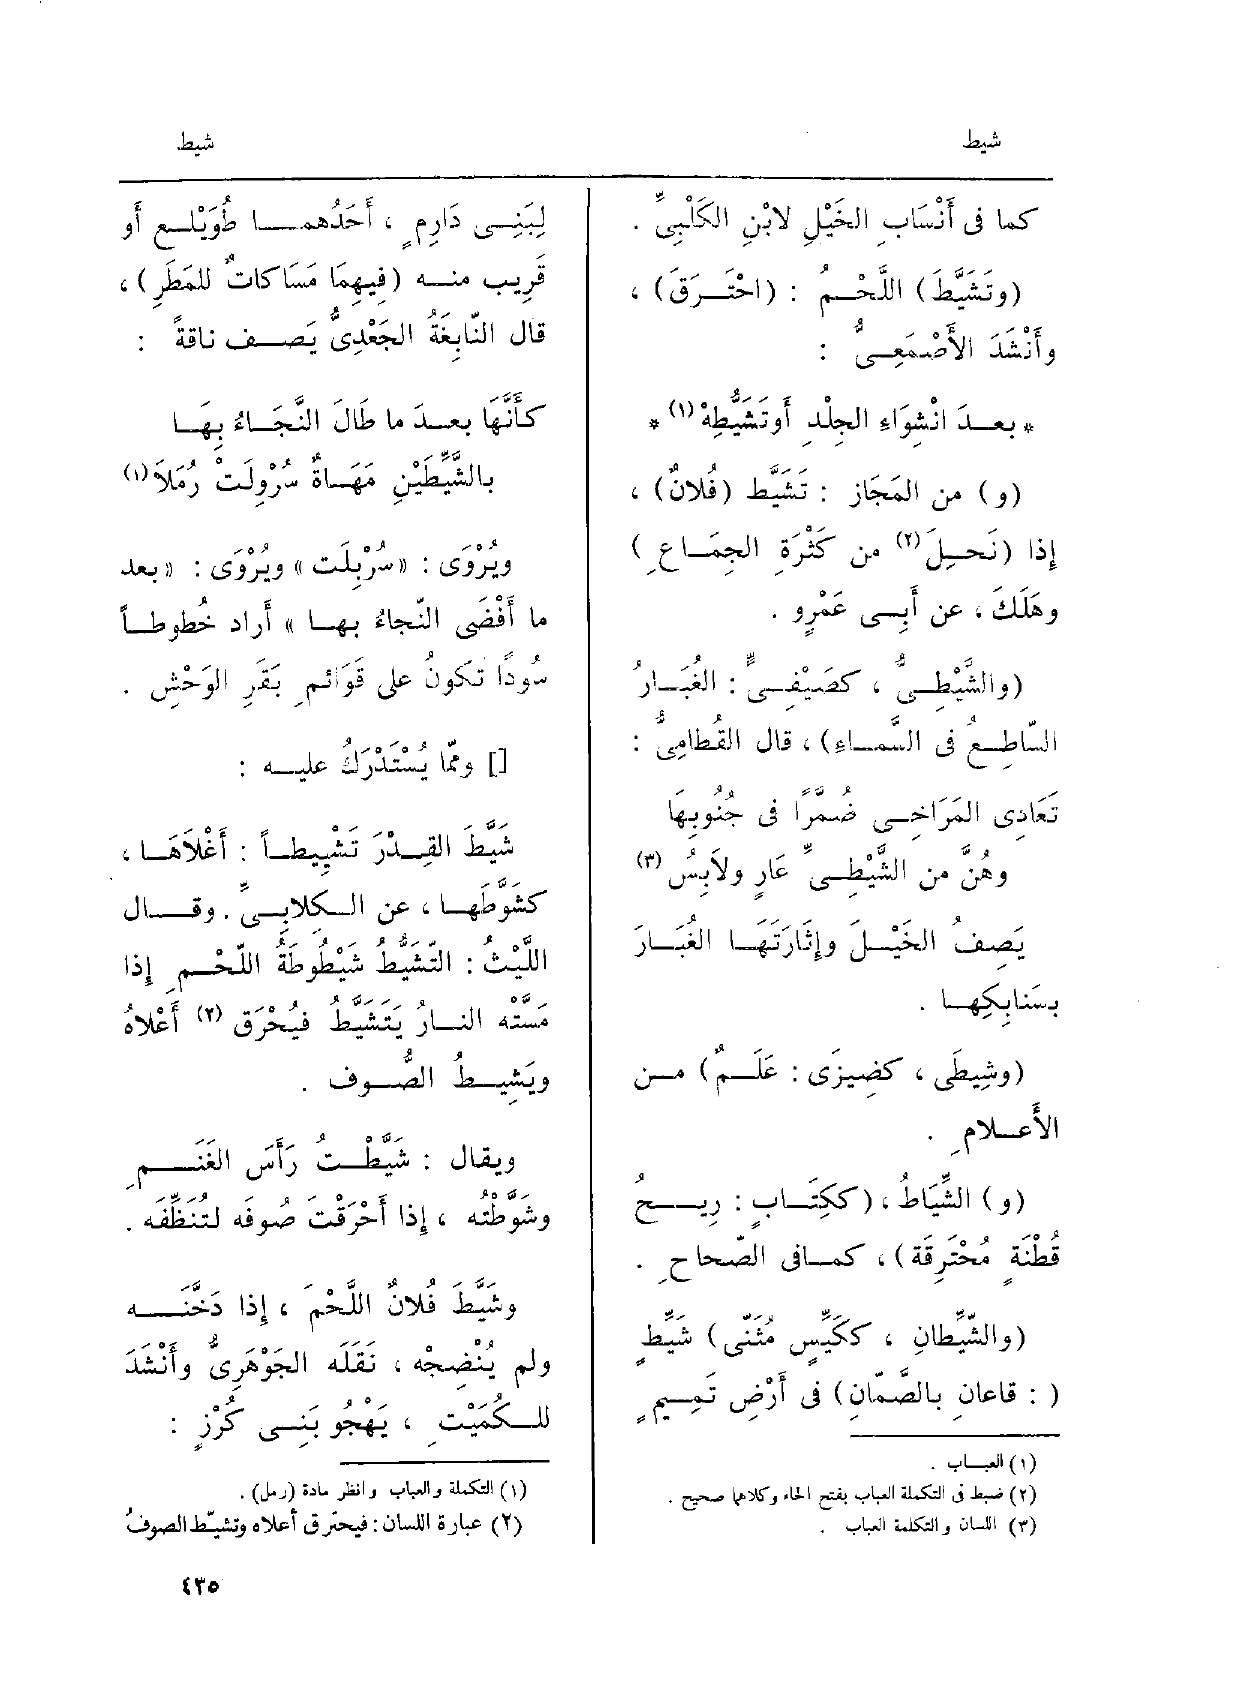 شيط
شيط
كما فى أَنْسَابِ الخَيْلِ لابْنِ الكَلْبِىِّ .
(وتَشَيَّطَ) اللَّحْمُ : (احْتَرَقَ) ،
وأَنْشَدَ الأَصْمَعِىُّ :
* بعدَ انْشِوَاءِ الجِلْدِ أَوتَشَيُّطِهْ (١) *
(و) من المَجَازِ : تَشَيَّطَ (فُلانٌ) ،
إذا (نَحِلَ (٢) من كَثْرَةِ الجِمَاعِ )
وهَلَكَ ، عن أَبِى عَمْرٍو .
(والشَّيْطِىُّ ، كصَيْفِىٍّ : الغُبَارُ
السَّاطِعُ فى السَّمَاءِ) ، قال القُطامِىُّ :
تَعَادِى المَرَاخِى ضُمَّرًا فى جُنُوبِهَا
وهُنَّ من الشَّيْطِىِّ عَارٍ ولَابِسُ (٣)
يَصِفُ الخَيْلَ وإِثَارَتَهَا الغُبَارَ
بسَنابِكِها .
(وشِيطَى ، كضِيزَى : عَلَمٌ) من
الأَعلامِ .
(و) الشِّيَاطُ ، (ككِتَابٍ : رِيحُ
قُطْنَةٍ مُحْتَرِقَة) ، كما فى الصّحاحِ .
(والشَّيِّطانِ ، ككَيِّسٍ مُثَنَّى) شَيِّطٍ
( : قاعانِ بالصَّمّانِ) فى أَرْضِ تَمِيمٍ
(١) العباب .
(٢) ضبط فى التكملة العباب بفتح الحاء وكلاهما صحيح .
(٣) اللسان والتكلمة العباب .
لِبَنِى دَارِمٍ ، أَحَدُهما طُوَيْلع أَو
قَرِيب منه (فِيهِمَا مَسَاكَاتٌ للمَطَرِ) ،
قال النَّابِغَةُ الجَعْدِىُّ يَصِف ناقةً :
كأَنَّهَا بعدَ ما طَالَ النَّجَاءُ بِهَا
بالشَّيِّطَيْنِ مَهَاةٌ سُرْوِلَتْ رُمَلَا (١)
ويُرْوَى : «سُرْبِلَت» ويُرْوَى : «بعد
ما أَفْضَى النَّجاءُ بها» أَراد خُطوطاً
سُودًا تَكونُ على قَوَائمِ بَقَرِ الوَحْشِ .
[] وممّا يُسْتَدْرَكُ عليه :
شَيَّطَ القِدْرَ تَشْيِيطاً : أَغْلَاهَا ،
كشَوَّطَها ، عن الكِلابِىِّ . وقال
اللَّيْثُ : التَّشَيُّطُ شَيْطُوطَةُ اللَّحْمِ إذا
مَسَّتْه النارُ يَتَشَيَّطُ فيُحْرَق (٢) أَعْلاهُ
ويَشِيطُ الصُّوف .
ويقال : شَيَّطْتُ رَأْسَ الغَنَمِ
وشَوَّطْتُه ، إذا أَحْرَقْتَ صُوفَه لتُنَظِّفَه .
وشَيَّطَ فُلانٌ اللَّحْمَ ، إذا دَخَّنَه
ولم يُنْضِجْه ، نَقَلَه الجَوْهَرِىُّ وأَنْشَدَ
للكُمَيْتِ ، يَهْجُو بَنِى كُرْزٍ :
(١) التكملة والعباب وانظر مادة (رمل) .
(٢) عبارة اللسان : فيحترق أعلاه وتشيّط الصوفُ
٤٣٥